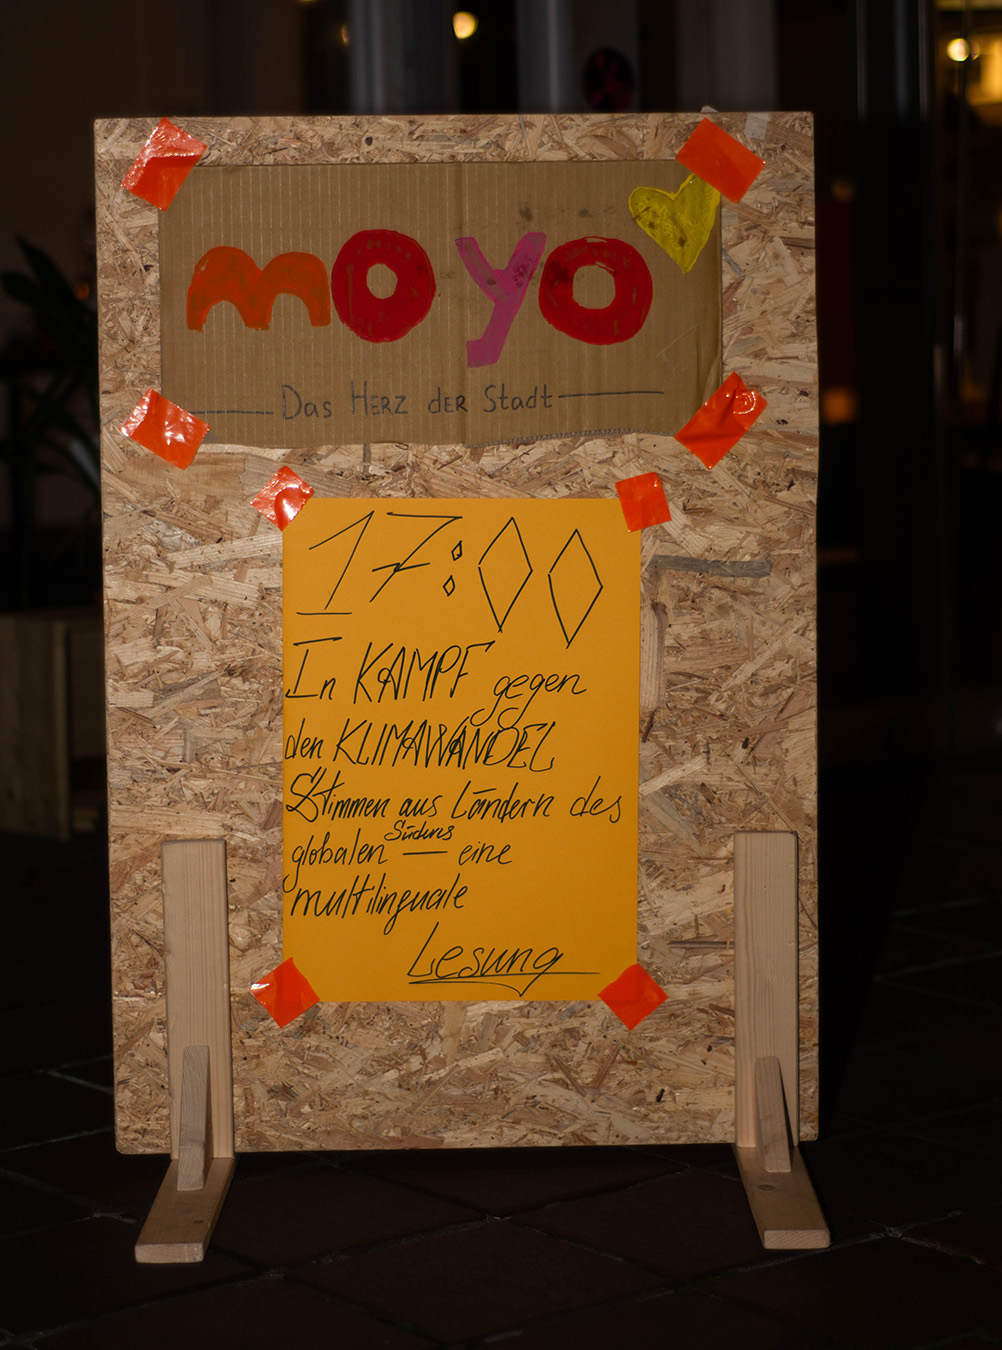 moyo
Das HERZ DER Stadt
17:00
In KAMPF gegen
den KLIMAWANDEL
Stimmen aus Ländern des
globalen Südens — eine
multilinguale
Lesung